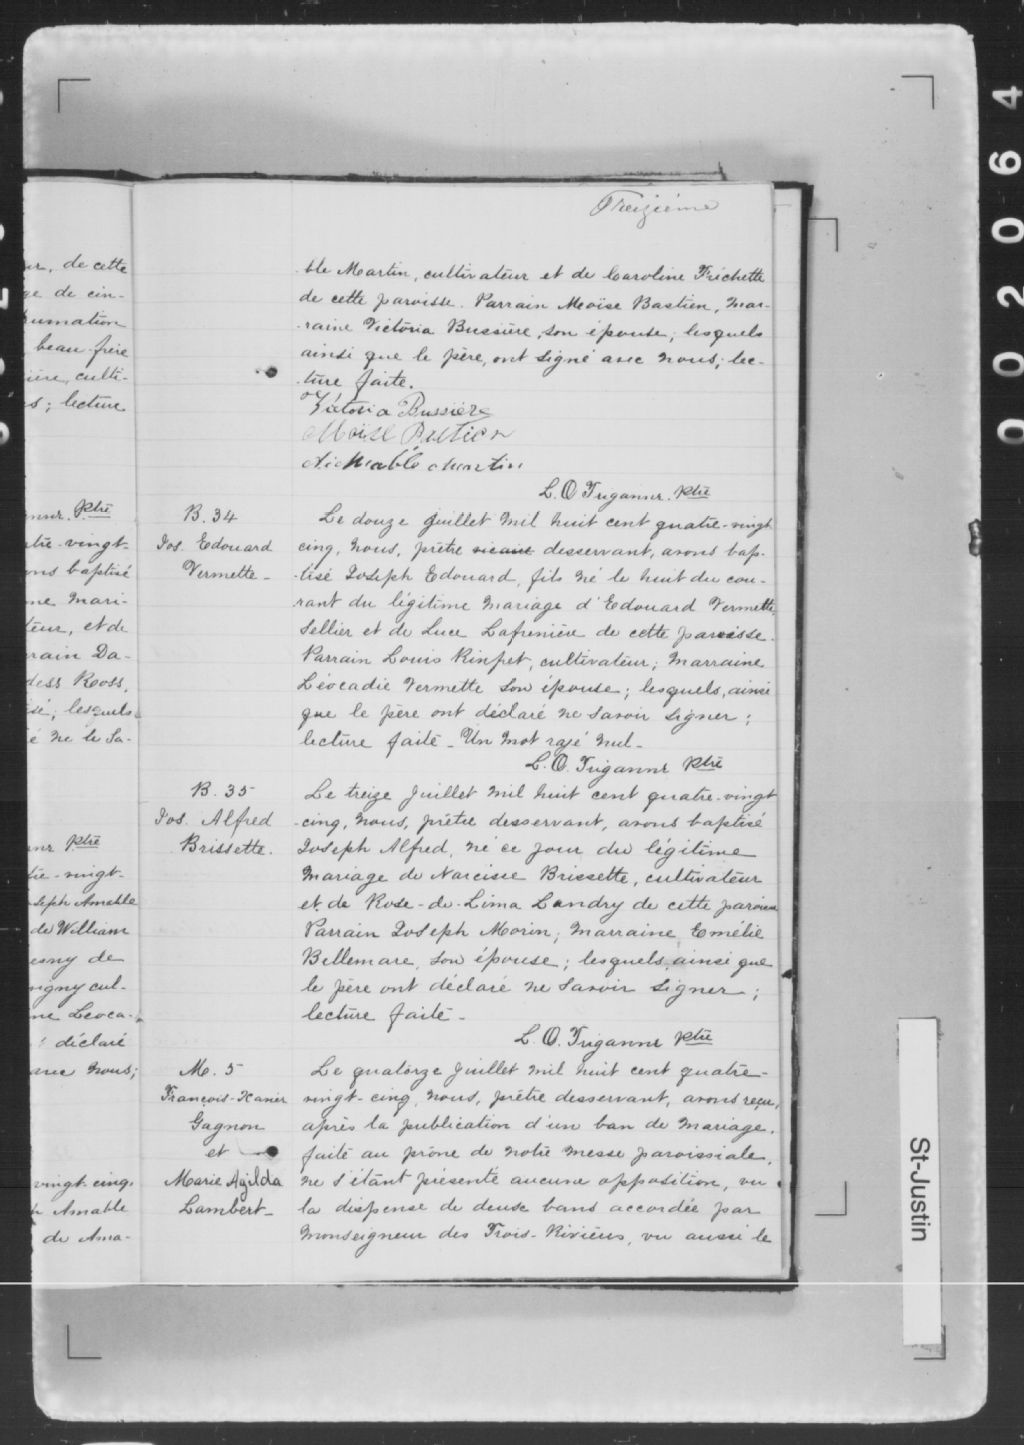 Treizième
ble Martin, cultivateur et de Caroline Frichette
de cette paroisse. Parrain Moïse Bastien, mar-
-raine Victoria Bussière, son épouse; lesquels
ainsi que le père, ont signé avec nous; lec-
-ture faite.
Victoria Bussière
Moïse Bastien
Aimable Martin
L. O Triganne. Ptre
B. 34
Jos. Edouard
Vermette -
Le douze juillet mil huit cent quatre-vingt
cinq, nous, prêtre vicaire desservant, avons bap-
-tisé Joseph Edouard, fils né le huit du cou-
rant du légitime mariage d'Edouard Vermette,
sellier et de Luce Lafrenière de cette paroisse.
Parrain Louis Rinfret, cultivateur; marraine
Léocadie Vermette son épouse; lesquels, ainsi
que le père ont déclaré ne savoir signer;
lecture faite - Un mot rayé nul -
L. O. Triganne Ptre
B. 35
Jos. Alfred
Brissette.
Le treize juillet mil huit cent quatre-vingt
-cinq, nous, prêtre desservant, avons baptisé
Joseph Alfred, né ce jour du légitime
mariage de Narcisse Brissette, cultivateur
et de Rose-de-Lima Landry de cette paroisse
Parrain Joseph Morin; marraine Emélie
Bellemare, son épouse; lesquels, ainsi que
le père ont déclaré ne savoir signer;
lecture faite -
L. O. Triganne Ptre
M. 5
François-Xavier
Gagnon
et
Marie Agilda
Lambert -
Le quatorze juillet mil huit cent quatre-
vingt-cinq, nous, prêtre desservant, avons reçu,
après la publication d'un ban de mariage,
faite au prône de notre messe paroissiale,
ne s'étant présenté aucune opposition, vu
la dispense de deux bans accordée par
Monseigneur des Trois-Rivières, vu aussi le
ur, de cette
ge de cin-
humation
beau frère
ière, culti-
s; lecture
Ptre
tre-vingt-
ons baptisé
ne Mari-
teur, et de
rrain Da-
dess Ross,
sé; lesquels
é ne le sa-
Ptre
tre-vingt-
seph Amable
de William
esny de
signy cul-
ne Léoca-
déclaré
avec nous;
vingt-cinq,
h Amable
de Ama-
St-Justin
0 0 2 0 6 4